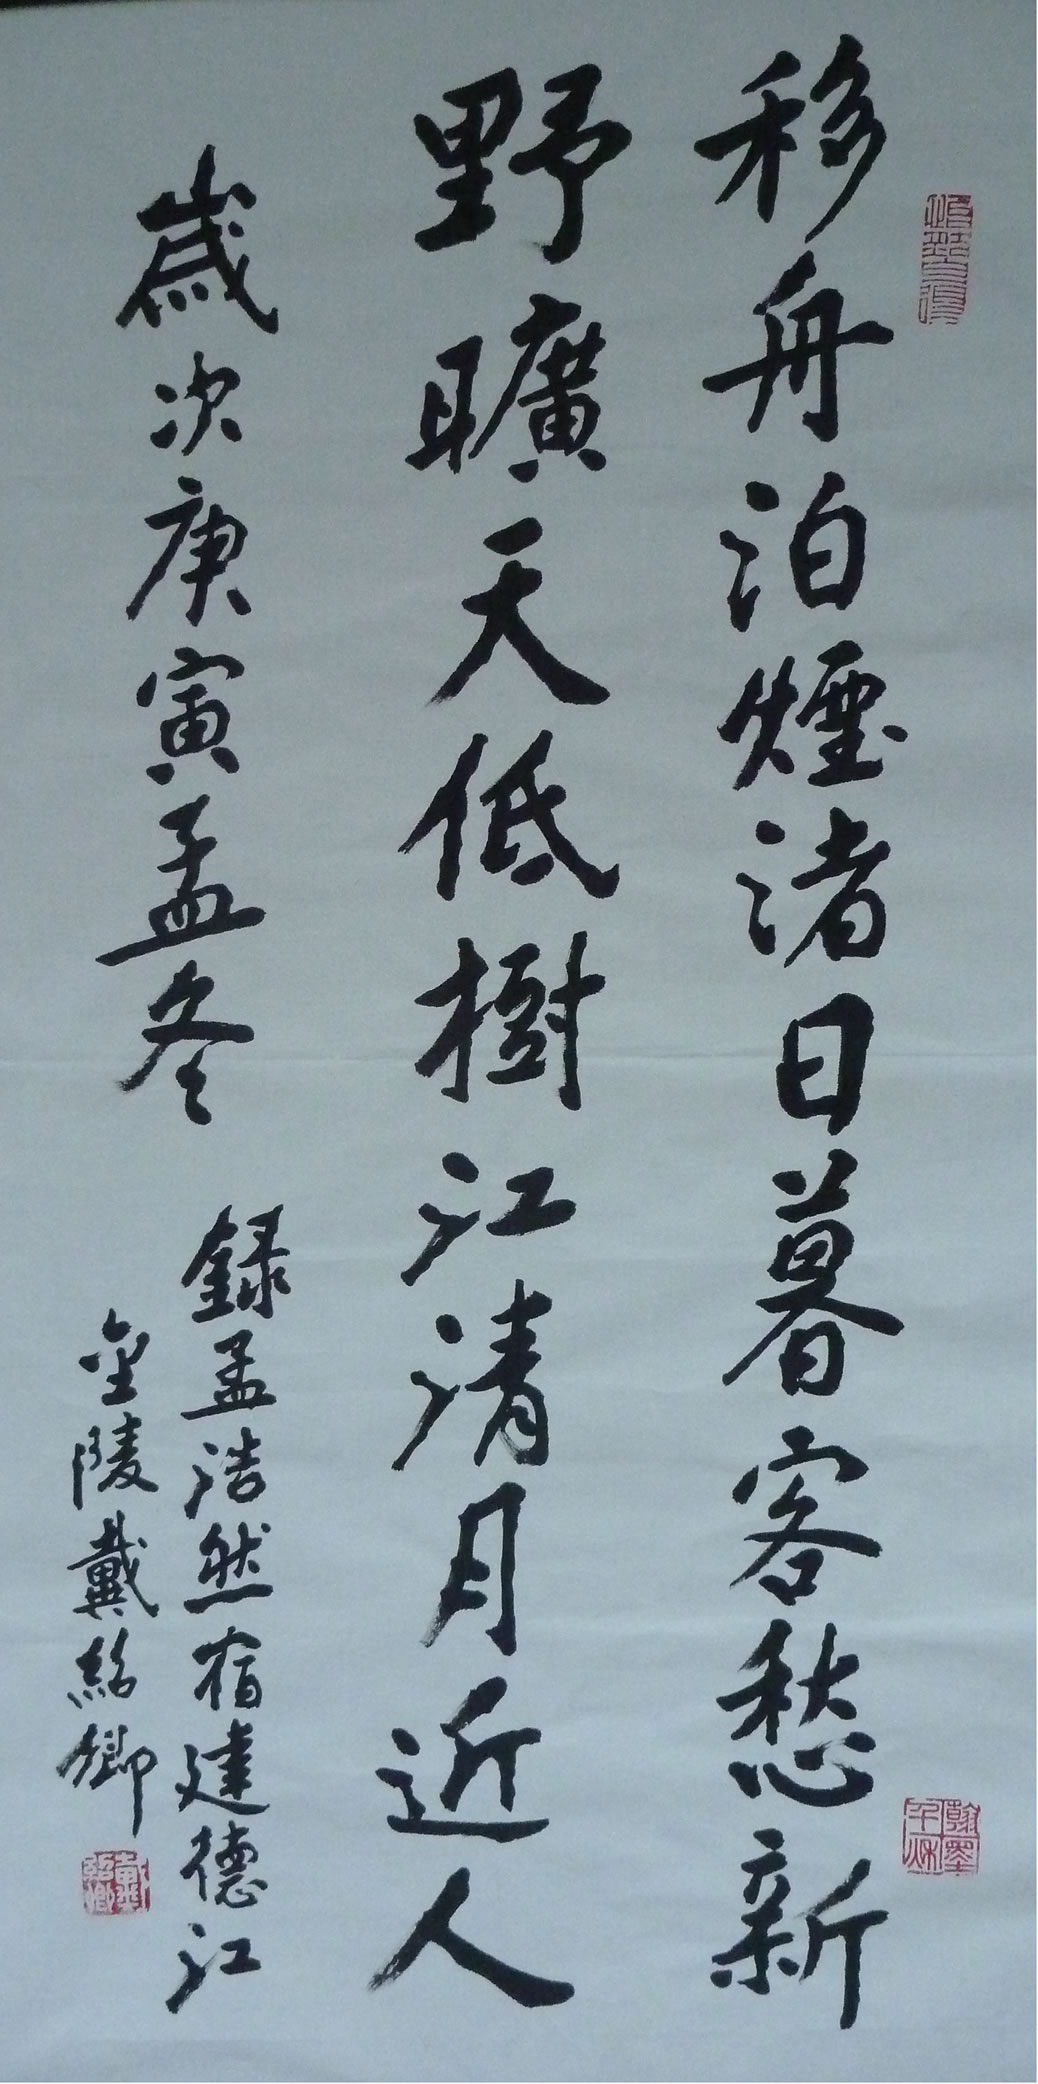 移舟泊煙渚日暮客愁新
野曠天低樹江清月近人
歲次庚寅孟冬
錄孟浩然宿建德江
金陵戴紹卿
翰墨千秋
戴紹卿